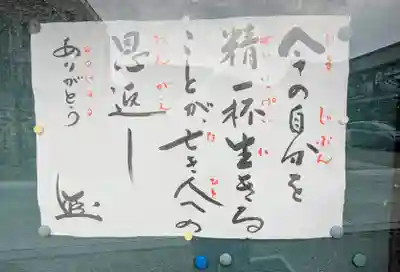 今の自分を
精一杯生きる
ことが、亡き人への
恩返し
ありがとう